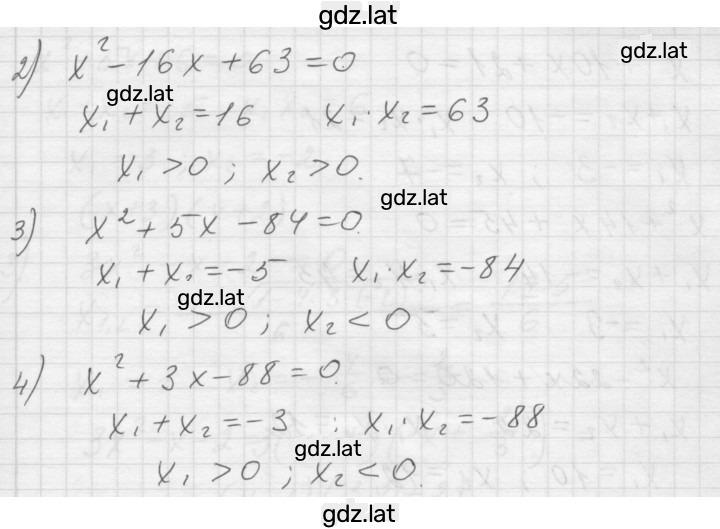 gdz.lat
2) x² - 16x + 63 = 0
gdz.lat
gdz.lat
x₁ + x₂ = 16 x₁ · x₂ = 63
x₁ > 0 ; x₂ > 0.
gdz.lat
3) x² + 5x - 84 = 0.
x₁ + x₂ = -5 x₁ · x₂ = -84
gdz.lat
x₁ > 0 ; x₂ < 0
4) x² + 3x - 88 = 0.
x₁ + x₂ = -3 ; x₁ · x₂ = -88
gdz.lat
x₁ > 0 ; x₂ < 0.
gdz.lat